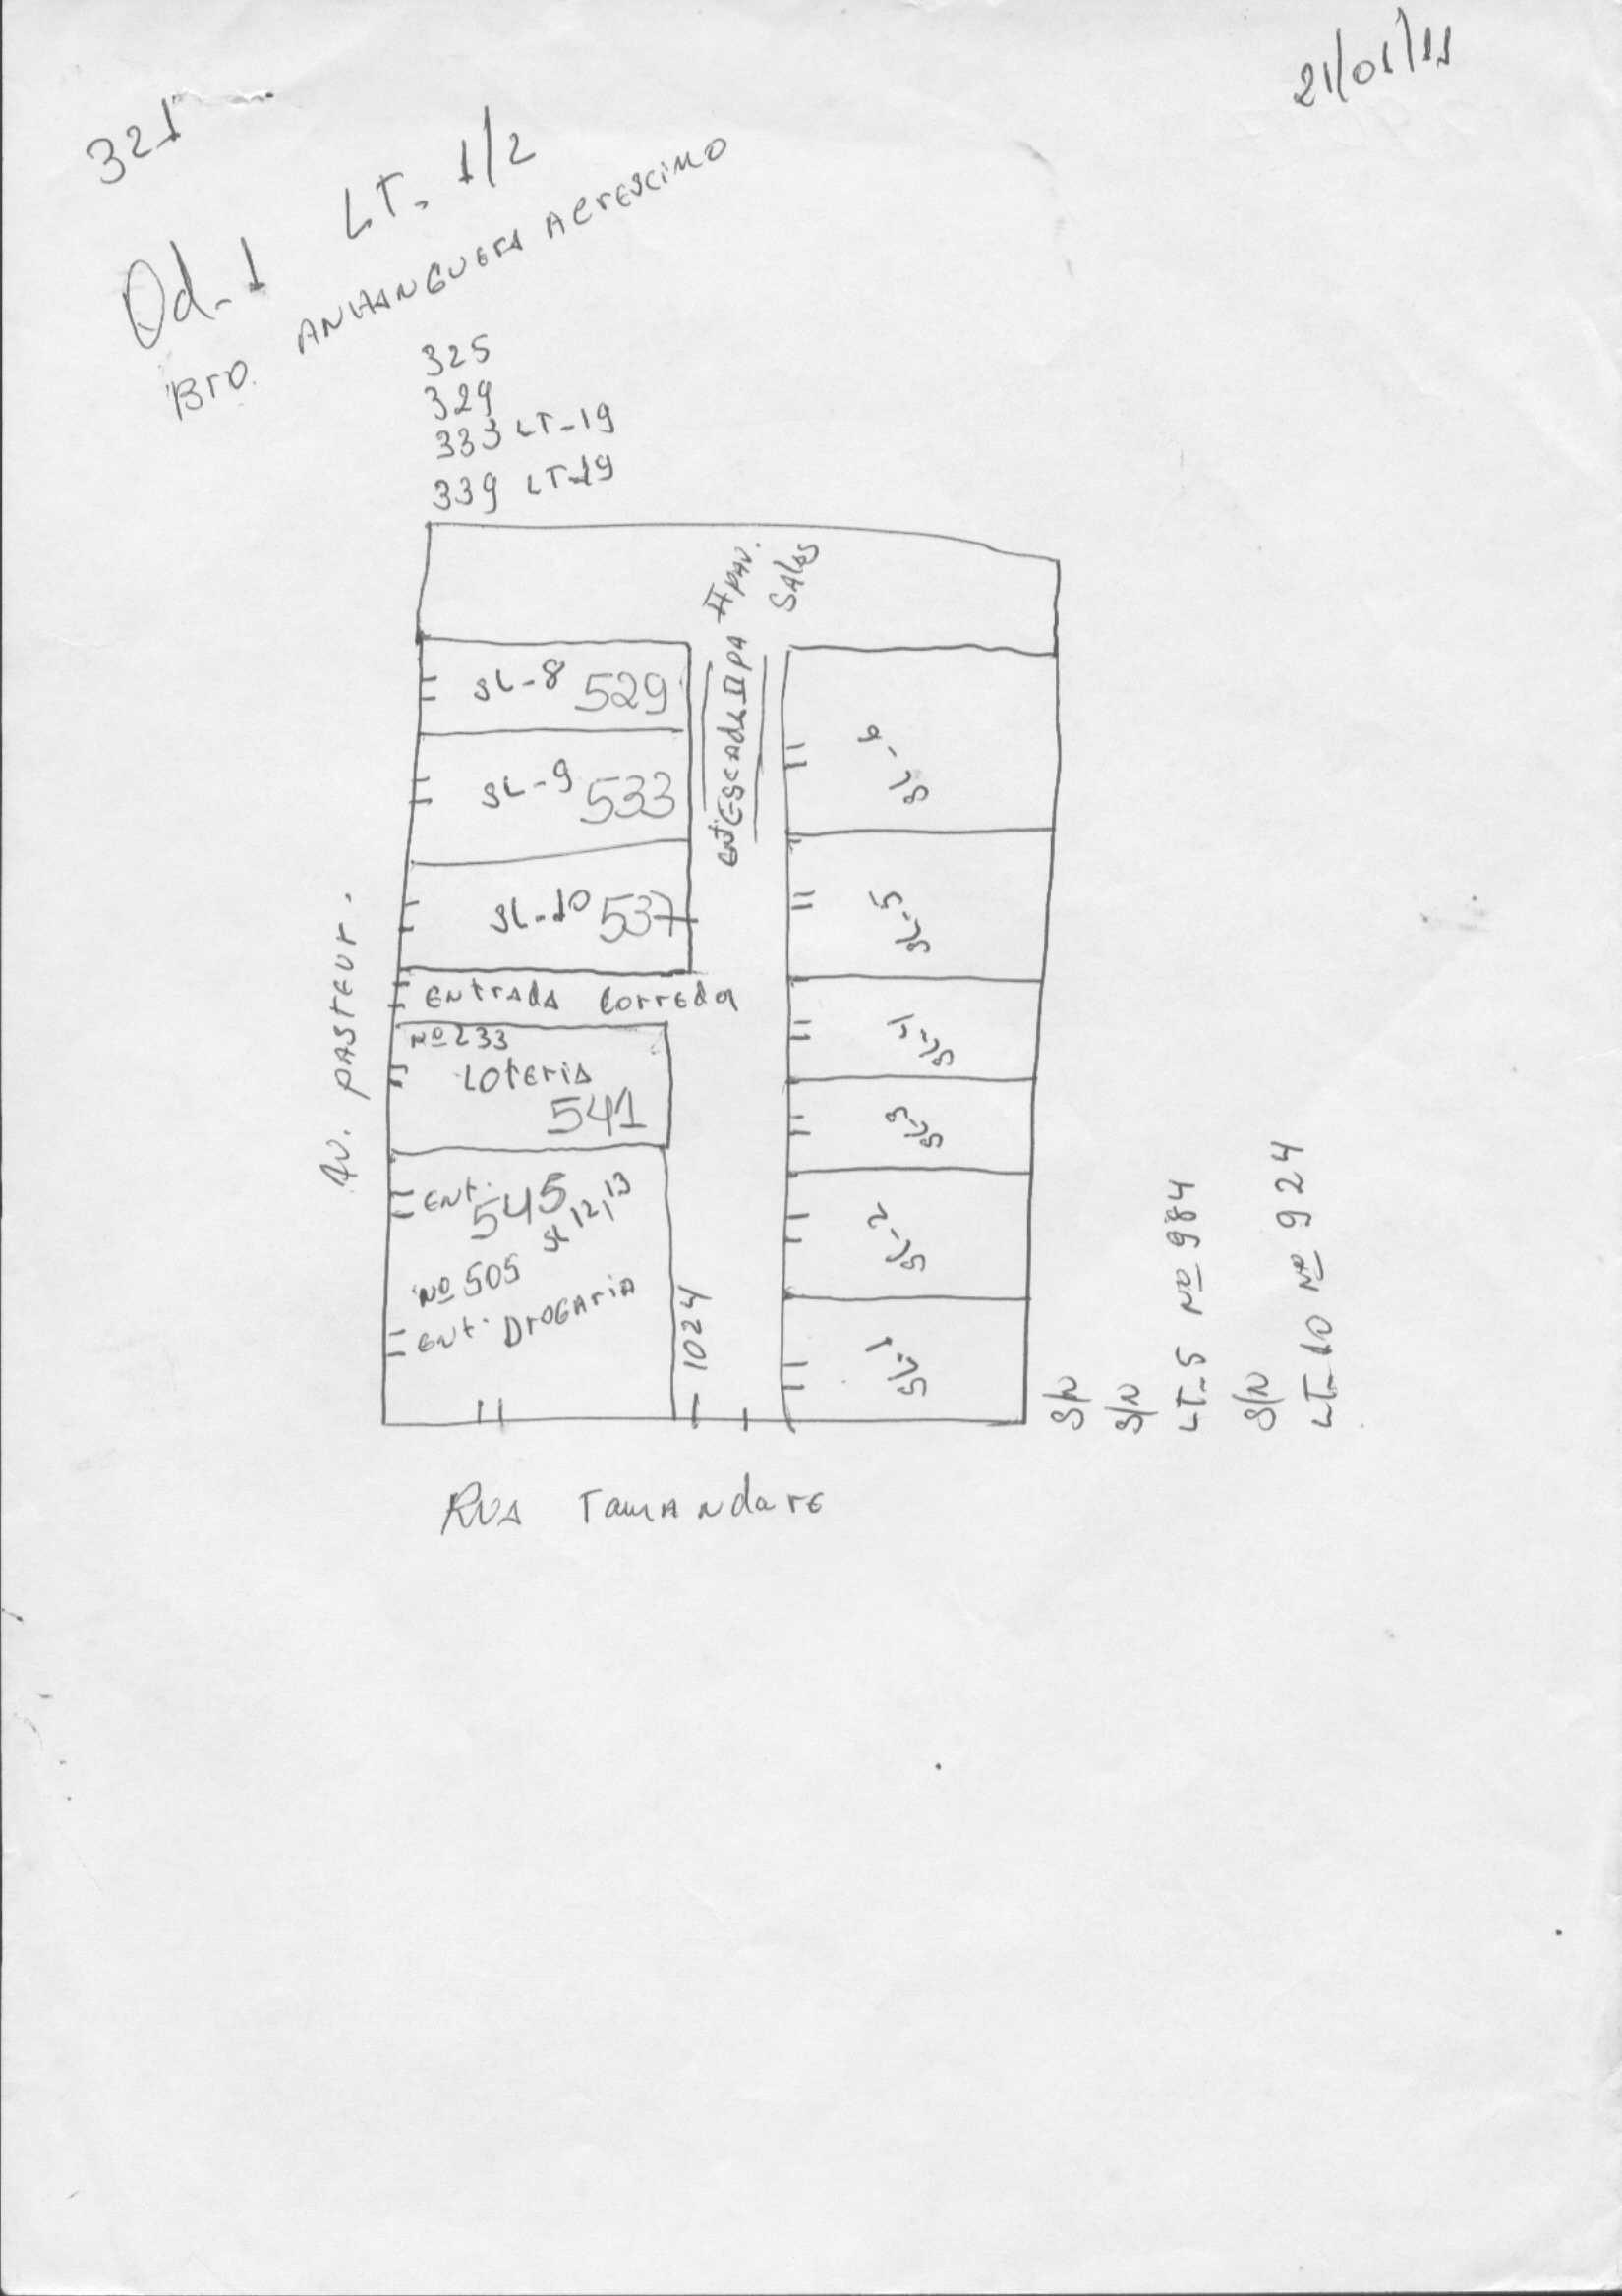 21/01/11
321
Qd-1 LT. 1/2
Bro. ANHANGUERA ACrESCIMO
325
329
333 LT-19
339 LT-19
II PAV.
SALAS
ENT ESCADA II PA
SL-8 529
SL-9 533
SL-10 537
ENTRADA CorrEdor
Nº 233
LOTEriA
541
ENT.
545
SL 12,13
Nº 505
ENT. DrOGAriA
1024
SL-6
SL-5
SL-4
SL-3
SL-2
SL-1
AV. PASTEUr.
RUA TAMANdArE
S/N
S/N
LT-5 Nº 984
S/N
LT-10 Nº 924